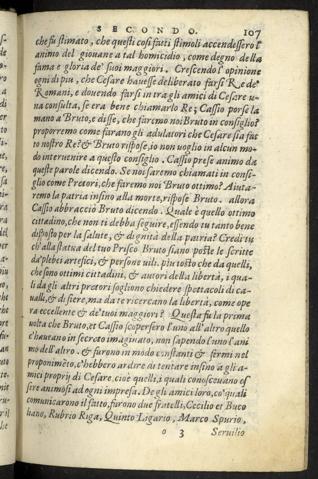 SECONDO. 107
che fu stimato, che questi cosi fatti stimoli accendessero l'
animo del giouane a tal homicidio, come degno della
fama e gloria de' suoi maggiori. Crescendo l'opinione
ogni dì piu, che Cesare hauesse deliberato farsi Re de'
Romani, e douendo farsi in tra gli amici di Cesare u-
na consulta, se era bene chiamarlo Re; Cassio porse la
mano a Bruto, e disse, che faremo noi Bruto in consiglio?
proporremo come farano gli adulatori che Cesare sia fat
to nostro Re? & Bruto rispose, io non uoglio in alcun mo-
do interuenire a questo consiglio. Cassio prese animo da
queste parole dicendo. Se noi saremo chiamati in consi-
glio come Pretori, che faremo noi Bruto ottimo? Aiuta-
remo la patria insino alla morte, rispose Bruto. allora
Cassio abbracciò Bruto dicendo. Quale è quello ottimo
cittadino, che non ti debba seguire, essendo tu tanto bene
disposto per la salute, & dignità della patria? Credi tu
ch'alla statua del tuo Prisco Bruto siano poste le scritte
da plebei artefici, & persone uili. piu tosto che da quelli,
che sono ottimi cittadini, & autori della libertà, i qua-
li da gli altri pretori sogliono chiedere spettacoli di ca-
ualli, & di fiere, ma da te ricercano la libertà, come ope
ra eccellente & de' tuoi maggiori? Questa fu la prima
uolta che Bruto, et Cassio scopersero l'uno all'altro quello
c'haueano in secreto imaginato, non sapendo l'uno l'ani
mo dell'altro. & furono in modo constanti & fermi nel
proponimēto, c'hebbero ardire di tentare insino a gli a-
mici proprij di Cesare, cioè quelli, i quali conosceuano es
sere animosi ad ogni impresa. De gli amici loro, co' quali
comunicarono il fatto, furono due fratelli, Cecilio et Buco
liano, Rubrio Riga, Quinto Ligario, Marco Spurio,
o 3 Seruilio